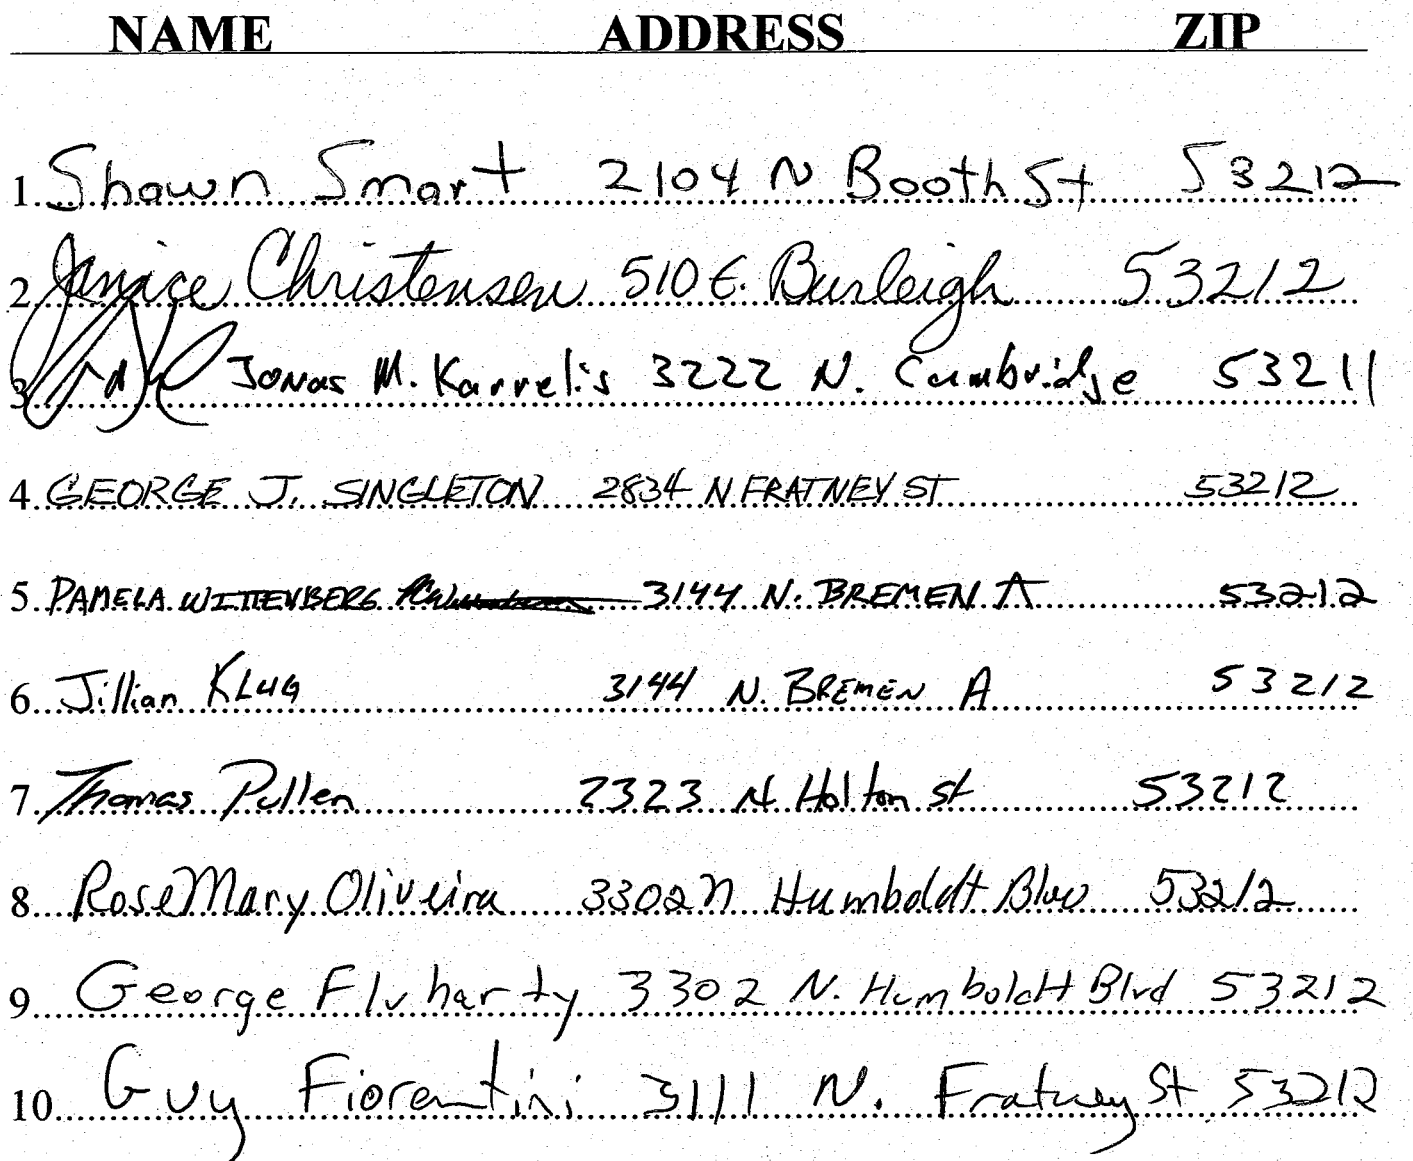 NAME ADDRESS ZIP
1. Shawn Smart 2104 N Booth St 53212
2. Janice Christensen 510 E. Burleigh 53212
3. Jonas M. Karrelis 3222 N. Cambridge 53211
4. GEORGE J. SINGLETON 2834 N FRATNEY ST 53212
5. PAMELA WITTENBERG 3144 N. BREMEN A 53212
6. Jillian KLUG 3144 N. BREMEN A 53212
7. Thomas Pullen 2323 N Holton st 53212
8. RoseMary Oliveira 3302 N Humboldt Blvd 53212
9. George Fluharty 3302 N. Humboldt Blvd 53212
10. Guy Fiorentini 3111 N. Fratney St 53212